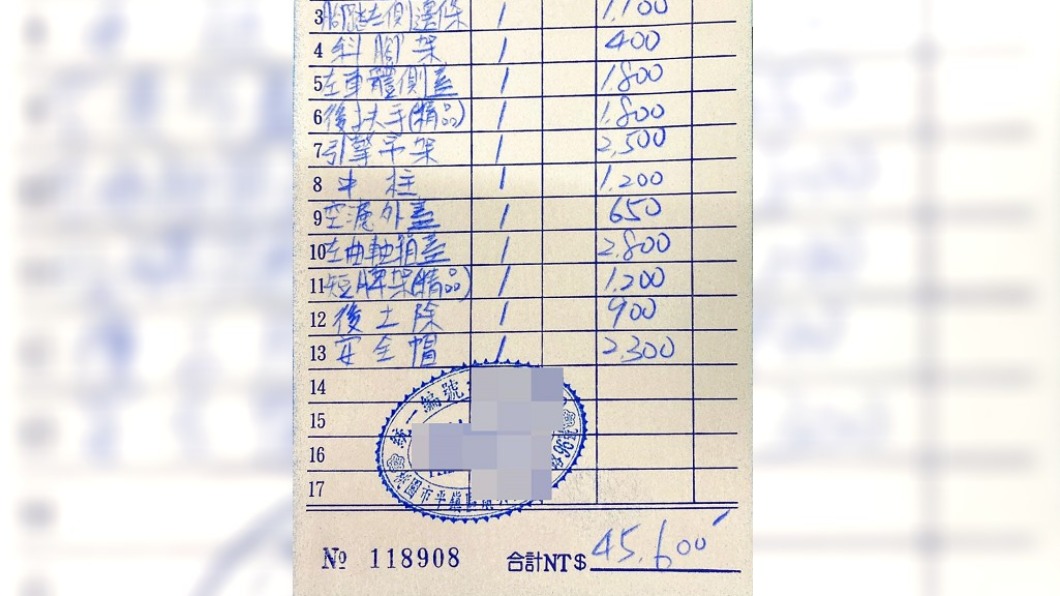 3 腳踏左側邊條 1 1,700
4 斜腳架 1 400
5 左車體側蓋 1 1,800
6 後扶手(精品) 1 1,800
7 引擎吊架 1 2,500
8 中柱 1 1,200
9 空濾外蓋 1 650
10 左曲軸箱蓋 1 2,800
11 短牌架(精品) 1 1,200
12 後土除 1 900
13 安全帽 1 2,300
14
15
16
17
統一編號
96號
桃園市平鎮區
№ 118908 合計NT$ 45,600